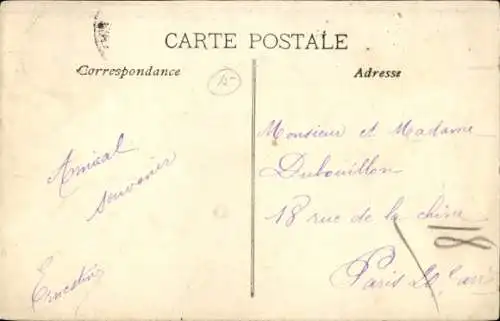 CARTE POSTALE
Correspondance
Adresse
15
Amical
souvenir
Ernestine
Monsieur et Madame
Dubouillon
18 rue de la Chine
18
Paris 20 arr